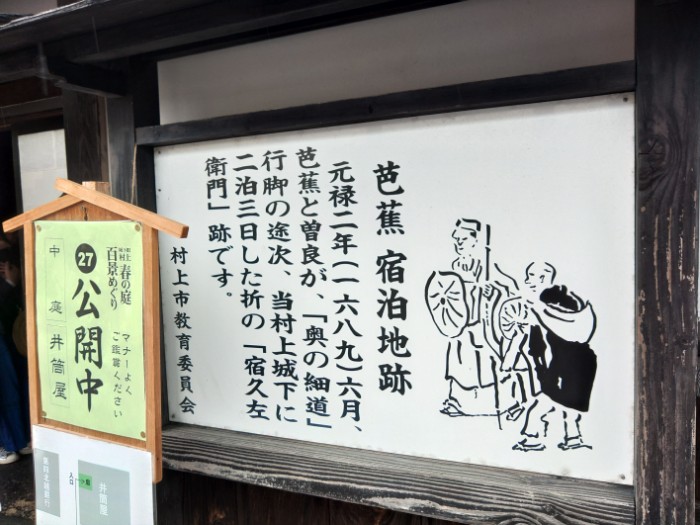 芭蕉 宿泊地跡
元禄二年(一六八九)六月、
芭蕉と曽良が、「奥の細道」
行脚の途次、当村上城下に
二泊三日した折の「宿久左
衛門」跡です。
村上市教育委員会
春の庭
百景めぐり
27
公開中
マナーよく
ご鑑賞ください
中庭 井筒屋
井筒屋